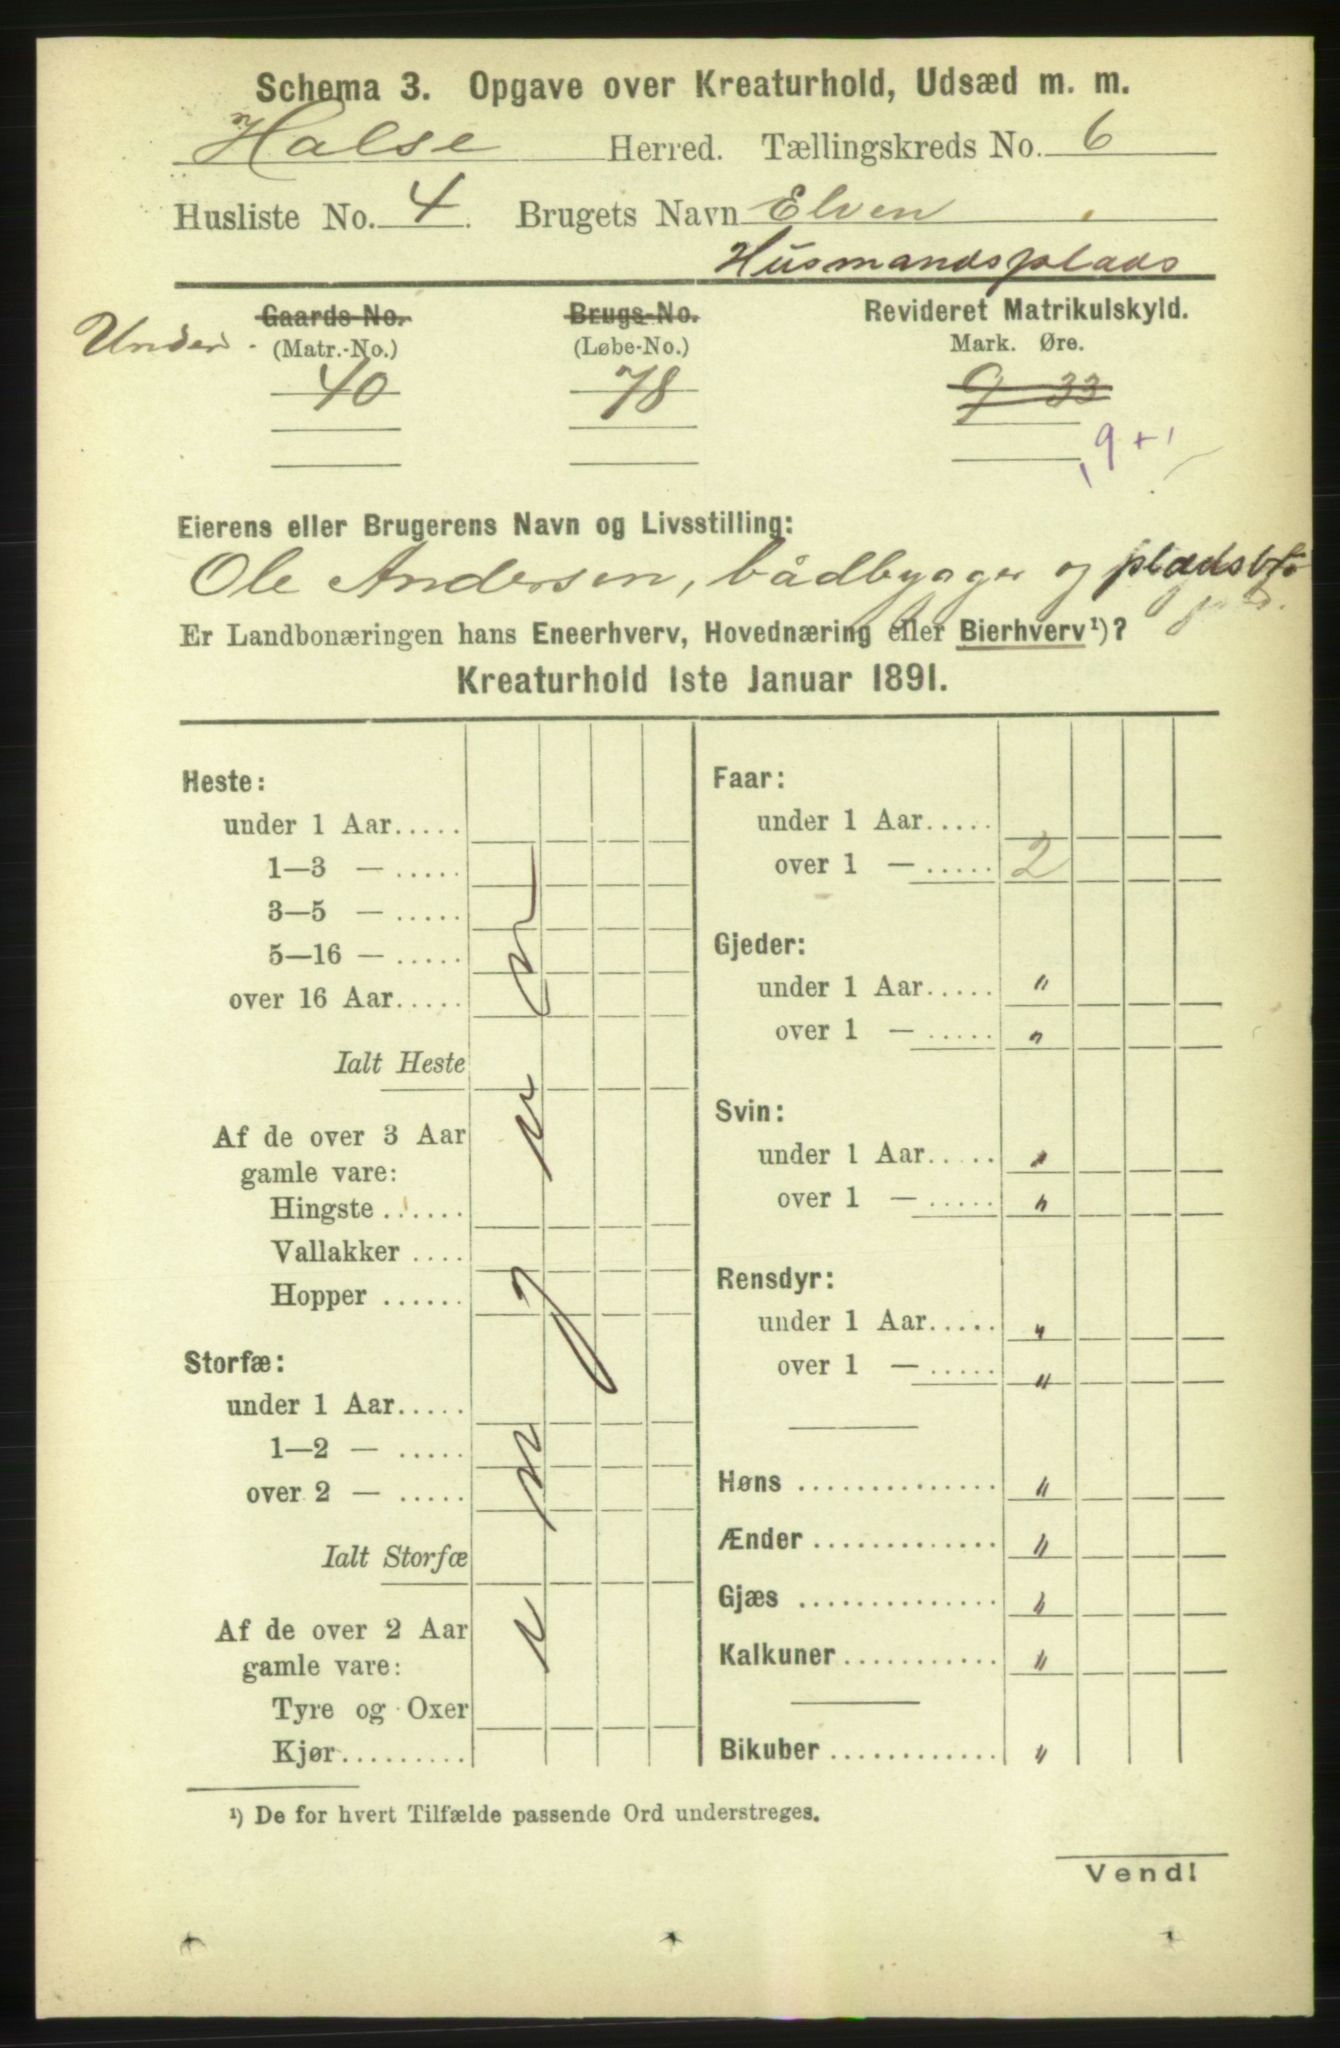 Schema 3. Opgave over Kreaturhold, Udsæd m. m.
Halse Herred. Tællingskreds No. 6
Husliste No. 4. Brugets Navn Elven
Husmandsplads
Under Gaards-No. Brugs-No. Revideret Matrikulskyld.
(Matr.-No.) (Løbe-No.) Mark. Øre.
40 78 9 33
9 + 1
Eierens eller Brugerens Navn og Livsstilling:
Ole Andersen, bådbygger og
Er Landbonæringen hans Eneerhverv, Hovednæring eller Bierhverv¹)?
Kreaturhold 1ste Januar 1891.
Heste:
under 1 Aar.....
1—3 — .....
3—5 — .....
5—16 — .....
over 16 Aar.....
Ialt Heste
Af de over 3 Aar
gamle vare:
Hingste ......
Vallakker ....
Hopper ......
Storfæ:
under 1 Aar.....
1—2 — .....
over 2 — .....
Ialt Storfæ
Af de over 2 Aar
gamle vare:
Tyre og Oxer
Kjør.........
Faar:
under 1 Aar.....
over 1 — ..... 2
Gjeder:
under 1 Aar..... "
over 1 — ..... "
Svin:
under 1 Aar..... "
over 1 — ..... "
Rensdyr:
under 1 Aar..... "
over 1 — ..... "
Høns .............. "
Ænder ............. "
Gjæs .............. "
Kalkuner ........... "
Bikuber ............ "
¹) De for hvert Tilfælde passende Ord understreges.
Vend!